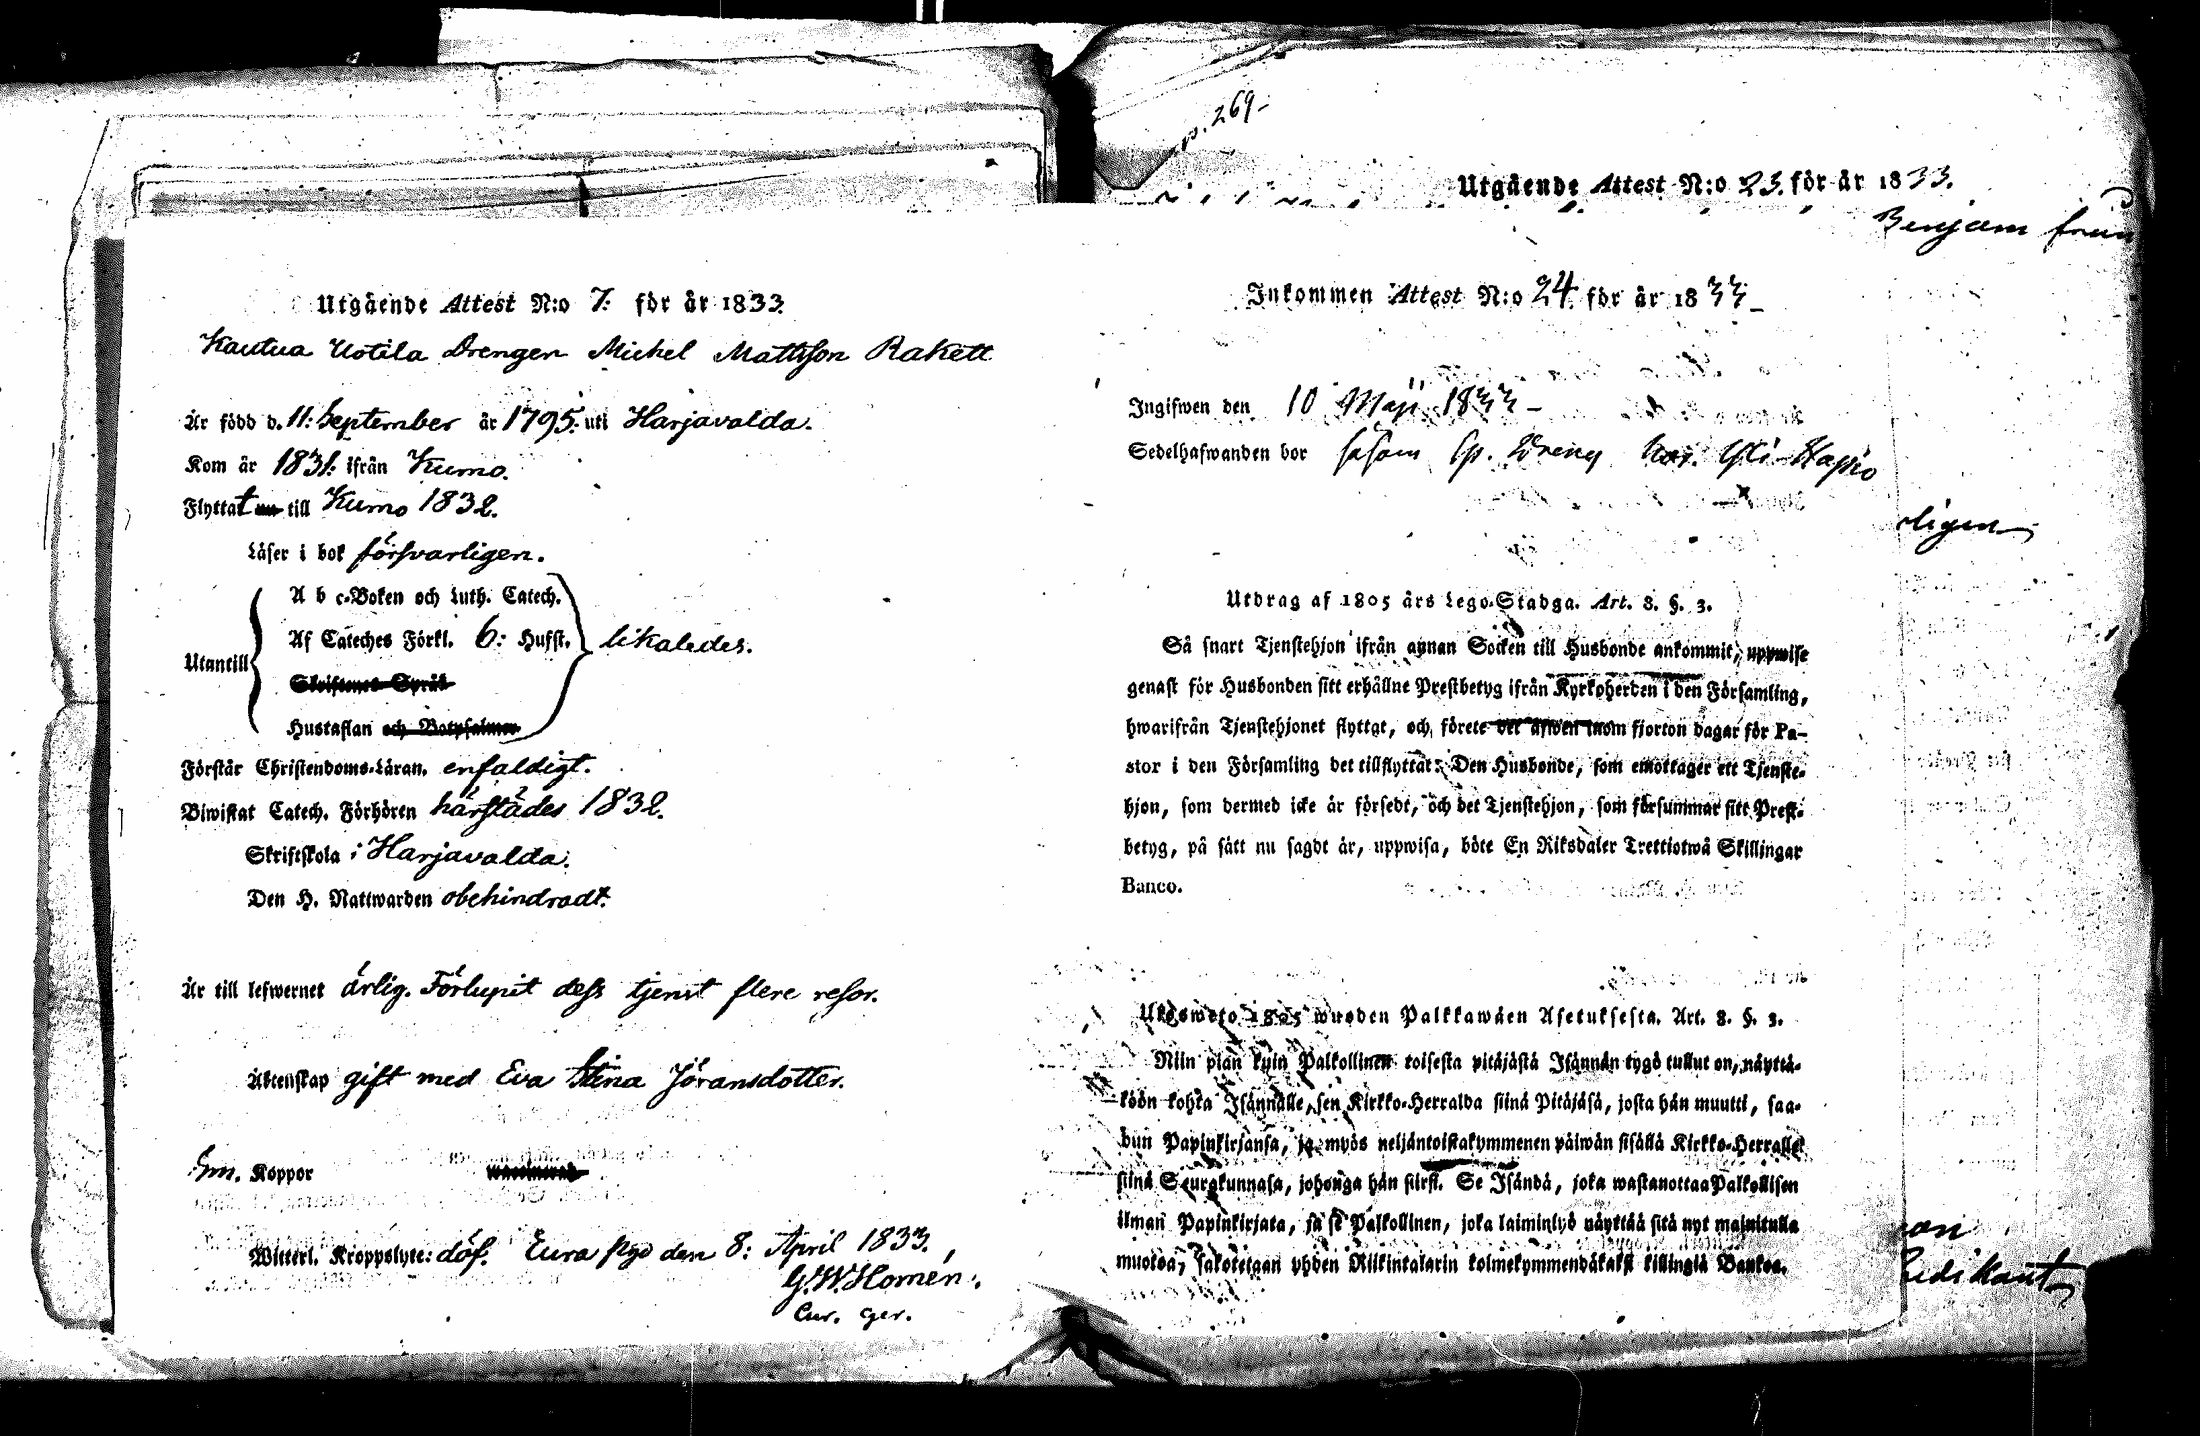 Utgående Attest N:o 7: för år 1833.
Kautua Uotila Drengen Michel Mattsson Rakett
Är född d. 11: September år 1795. uti Harjavalda.
Kom år 1831: ifrån Kumo.
Flyttat nu till Kumo 1832.
Läser i bok försvarligen.
Utantill
A b c-Boken och Luth. Catech.
Af Cateches Förkl. 6: Hufst. likaledes.
Skriftenes Språk
Hustaflan och Botpsalmer
Förstår Christendoms-Läran. enfaldigt.
Biwistat Catech. Förhören härstädes 1832.
Skriftskola i Harjavalda.
Den H. Nattwarden obehindradt.
Är till lefwernet ärlig. Förlupit dess tjenst flere resor.
Äktenskap gift med Eva Stina Jöransdotter.
Koppor
Witterl. Kroppslyte: döf. Eura den 8: April 1833.
G.W. Homén.
Cur. ger.
p. 269-
Utgående Attest N:o 23. för år 1833.
Benjam från
Inkommen Attest N:o 24. för år 1833
Ingifwen den 10 Maji 1833
Sedelhafwanden bor såsom
ligen
Utdrag af 1805 års Lego-Stadga. Art. 8. §. 3.
Så snart Tjenstehjon ifrån annan Socken till Husbonde ankommit, uppwise
genast för Husbonden sitt erhållne Prestbetyg ifrån Kyrkoherden i den Församling,
hwarifrån Tjenstehjonet flyttat, och förete det äfwen inom fjorton dagar för Pa-
stor i den Församling det tillflyttat: Den Husbonde, som emottager ett Tjenste-
hjon, som dermed icke är försedt, och det Tjenstehjon, som försummar sitt Prest-
betyg, på sätt nu sagdt är, uppwisa, böte En Riksdaler Trettiotwå Skillingar
Banco.
Ulosweto 1805 wuoden Palkkawäen Asetuksesta. Art. 8. §. 3.
Niin pian kuin Palkollinen toisesta pitäjästä Isännän tygö tullut on, näyttä-
köön kohta Isännälle, sen Kirkko-Herralda siinä Pitäjäsä, josta hän muutti, saa-
dun Papinkirjansa, ja myös neljäntoistakymmenen päiwän sisällä Kirkko-Herralle
siinä Seurakunnasa, johonga hän siirst. Se Isändä, joka wastanottaa Palkollisen
ilman Papinkirjata, ja se Palkollinen, joka laiminlyö näyttää sitä nyt mainitulla
muotoa, sakotetaan yhden Riikintalarin kolmekymmendäkaksi killingiä Bankoa.